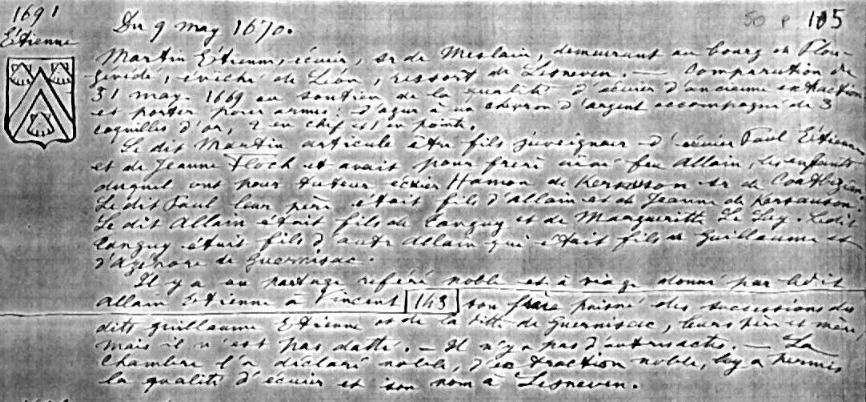 1691
Etienne
50 P 105
Du 9 may 1670.
Martin Etienne, écuier, sr de Meslain, demeurant au bourg de Plou-
gévédé, évêché de Léon, ressort de Lesneven. — Comparution du
31 may 1669 au soutien de la qualité d'écuier d'ancienne extraction
et porter pour armes: d'azur à un chevron d'argent accompagné de 3
coquilles d'or, 2 en chef et 1 en pointe.
Le dit Martin articule être fils juveigneur d'écuier Paul Etienne
et de Jeanne Floch et avait pour frère aîné feu Allain, les enfants
duquel ont pour tuteur écuier Hamon de sr de
Le dit Paul leur père était fils d'allain et de Jeanne de Kersauson.
Le dit Allain était fils de Tanguy et de Margueritte Le Ley. Ledit
Tanguy était fils d'autre Allain qui était fils de Guillaume et
d'azénore de Guernisac.
Il y a au partage référé noble et à viage donné par ledit
Allain Etienne à Vincent 143 son frère puisné des successions des
dits Guillaume Etienne et de la dite de Guernisac, leurs père et mère,
mais il n'est pas datté. — Il n'y a pas d'intersacte. — La
Chambre l'a déclaré noble, d'extraction noble, luy a permis
la qualité d'écuier et son nom à Lesneven.